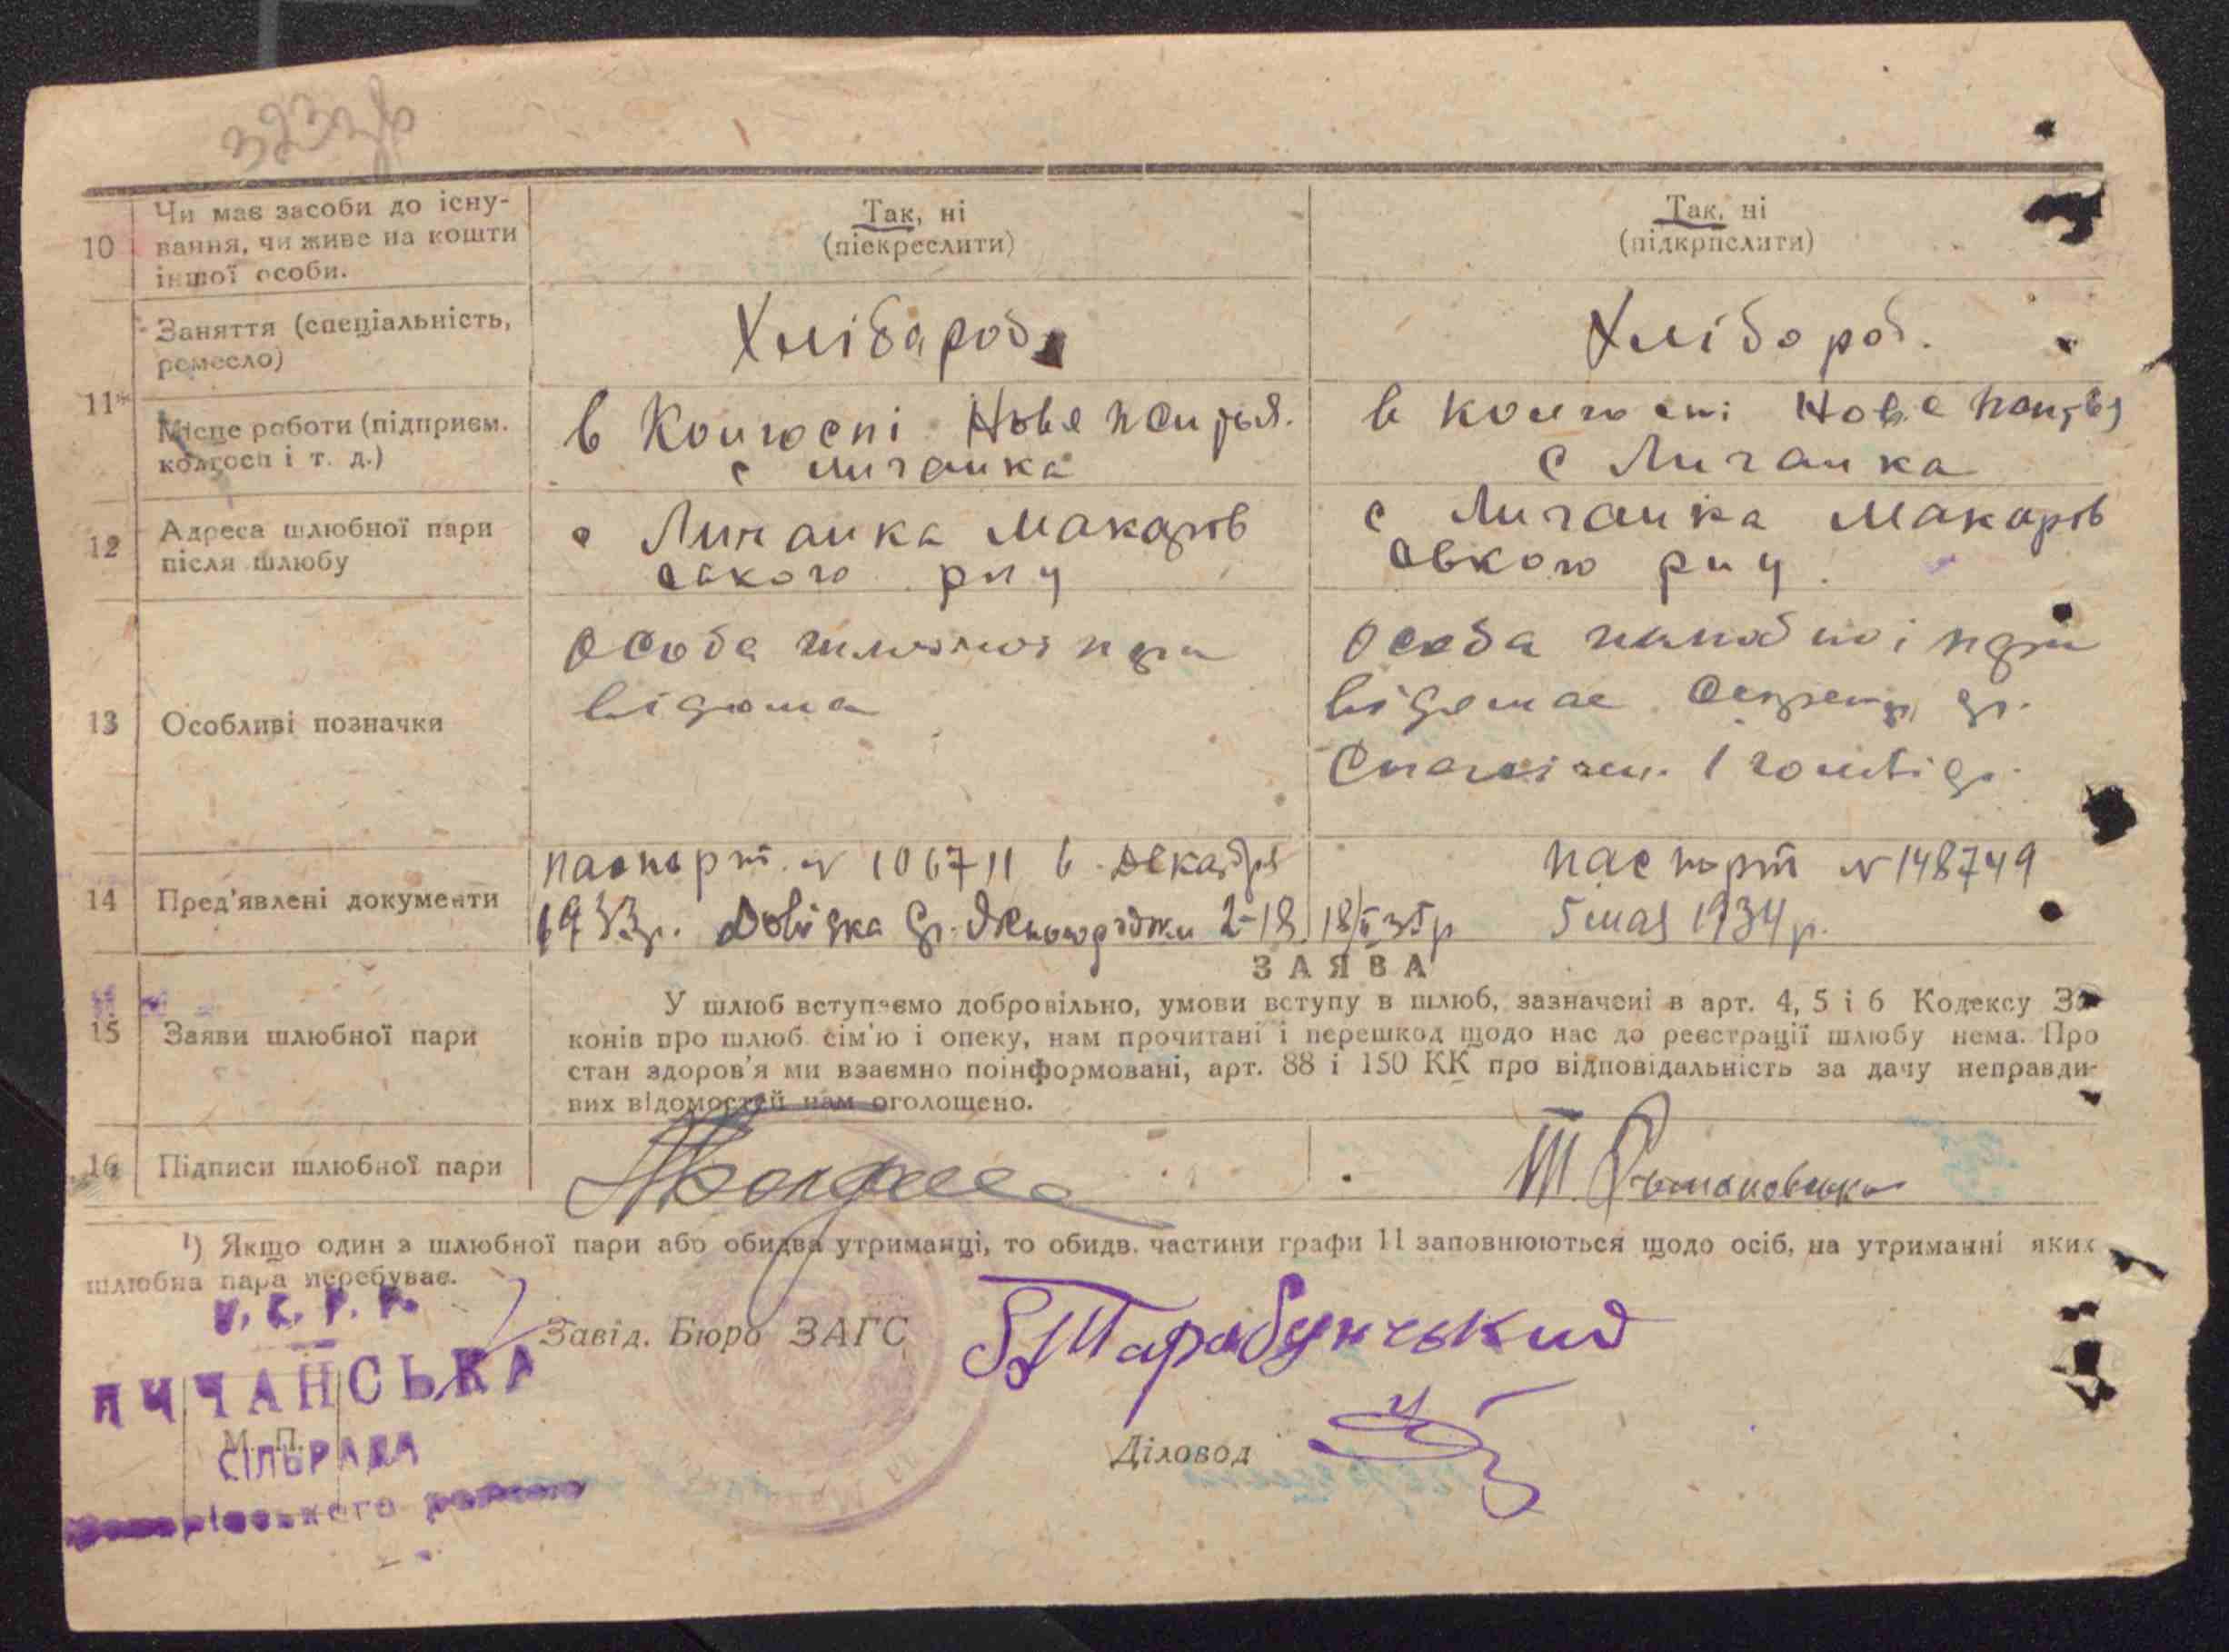 10
Чи має засоби до існу-
вання, чи живе на кошти
іншої особи.
Так, ні
(піекреслити)
Так, ні
(підкрпслити)
11*
Заняття (спеціальність,
ремесло)
Хлібароб
Хлібороб.
Місце роботи (підприєм.
колгосп і т. д.)
в Колгоспі Нове
с Личанка
в колгоспі Нове
с Личанка
12
Адреса шлюбної пари
після шлюбу
с Личанка Макарів
ського р-ну
с Личанка Макарів
ського р-ну
13
Особливі позначки
Особа шлюбної пари
відома
Особа шлюбної пари
відома
14
Пред'явлені документи
паспорт N 106711 6 Декабря
1933р. Довідка 2-18 18/ 35р
паспорт N 148749
5 мая 1934р.
ЗАЯВА
15
Заяви шлюбної пари
У шлюб вступаємо добровільно, умови вступу в шлюб, зазначені в арт. 4, 5 і 6 Кодексу За-
конів про шлюб сім'ю і опеку, нам прочитані і перешкод щодо нас до реєстрації шлюбу нема. Про
стан здоров'я ми взаємно поінформовані, арт. 88 і 150 КК про відповідальність за дачу неправди-
вих відомостей нам оголошено.
16
Підписи шлюбної пари
Т. Романовська
¹) Якщо один з шлюбної пари або обидва утриманці, то обидв. частини графи 11 заповнюються щодо осіб, на утриманні яких
шлюбна пара перебуває.
У. С. Р. Р.
Завід. Бюро ЗАГС
ЛИЧАНСЬКА
М. П.
СІЛЬРАДА
Макарівського району
Діловод